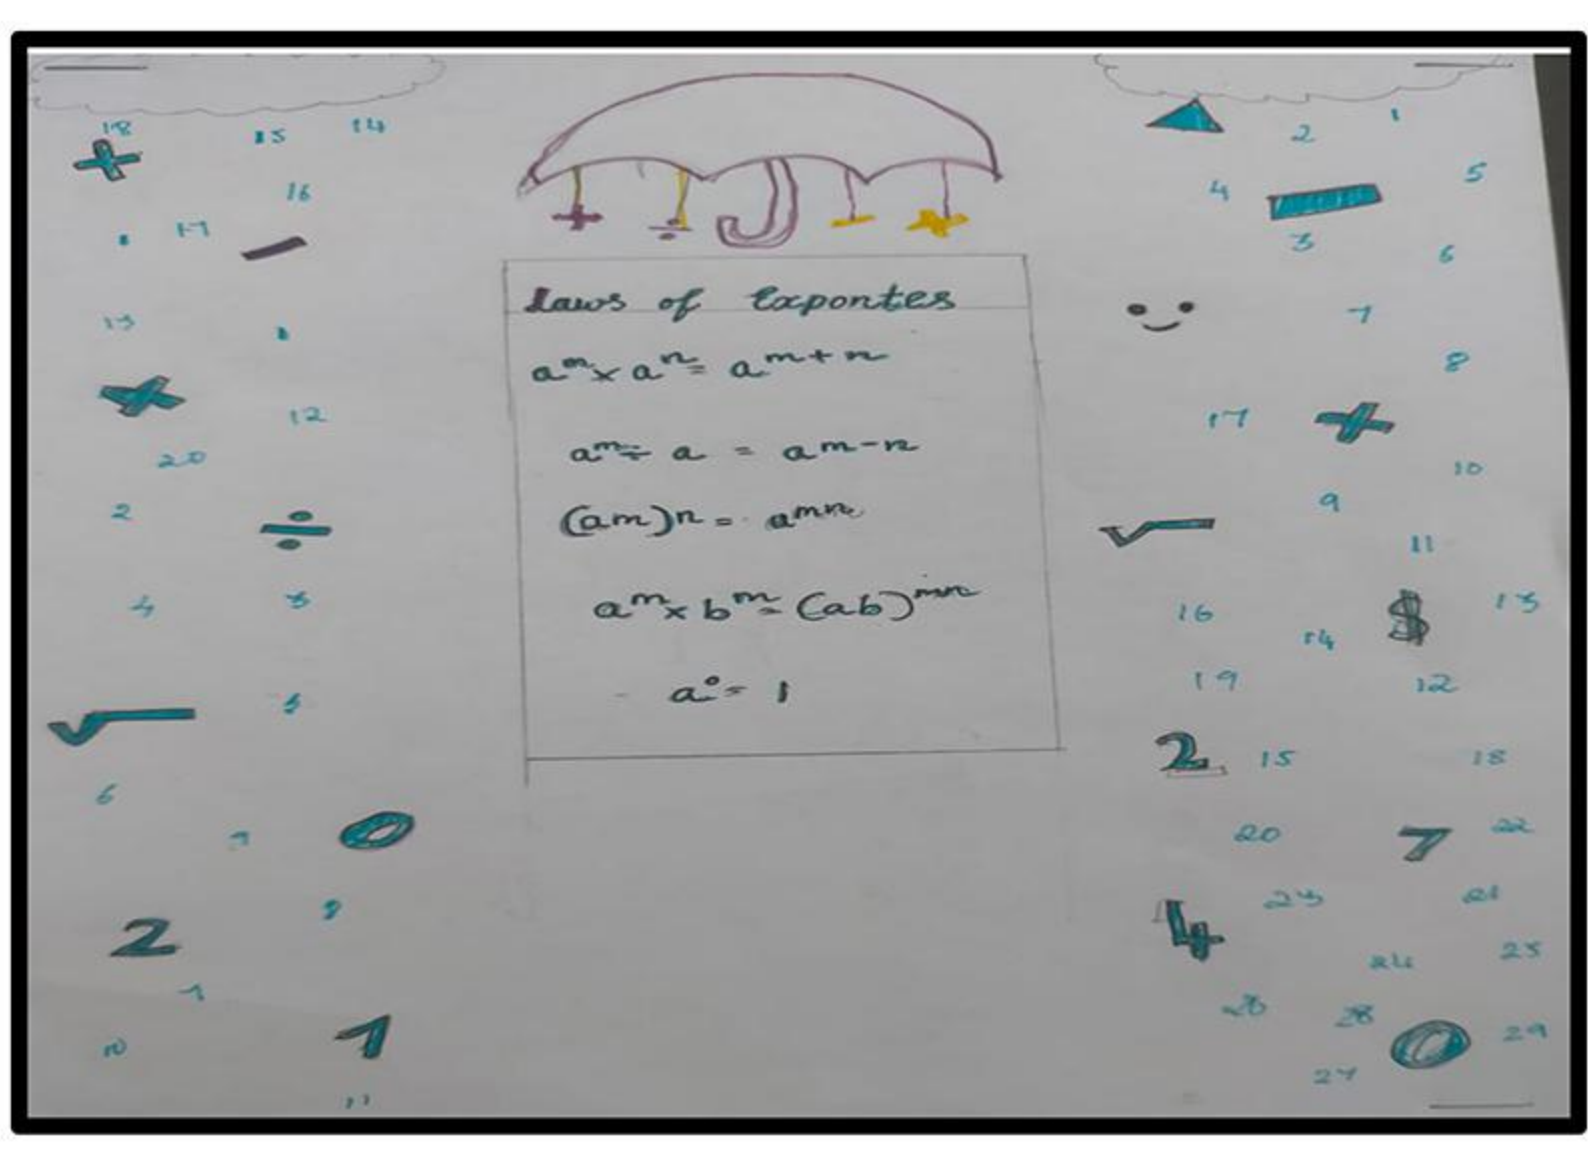 Laws of Expontes
aᵐ × aⁿ = aᵐ⁺ⁿ
aᵐ ÷ a = aᵐ⁻ⁿ
(am)n = aᵐⁿ
aᵐ × bᵐ = (ab)ᵐⁿ
a⁰ = 1
+ ÷ - +
18 15 14
+
16
17
-
13
×
12
20
2
÷
4 3
√
5
6
0
2
1
11
2 1
5
4
3
6
7
8
17 +
10
9
√
11
16 $ 13
14
19 12
2 15 18
20 7 22
23 21
4
24 25
28 29
0
27